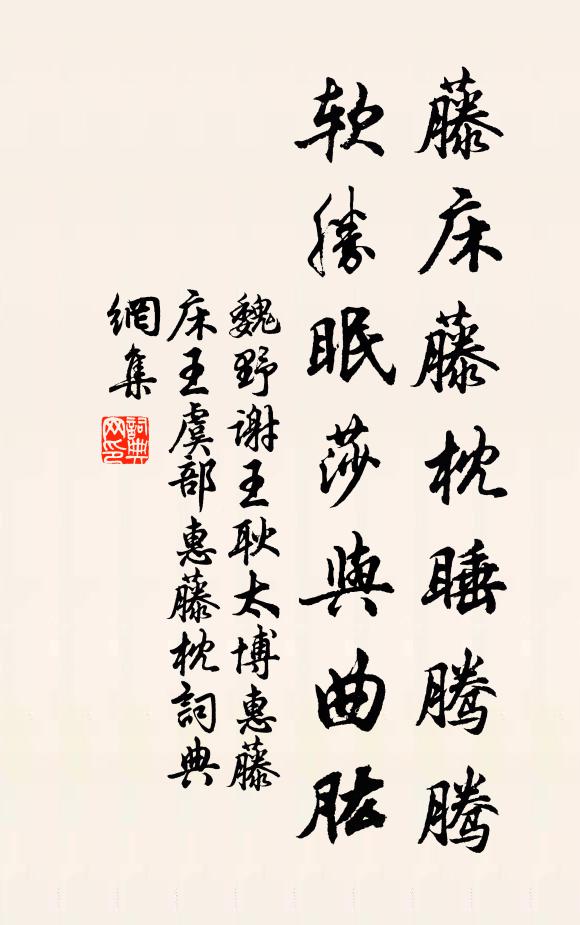 藤床藤枕睡腾腾
软勝眠莎與曲肱
魏野谢王耿太博惠藤
床王虞部惠藤枕詞典
網集
詞典網印